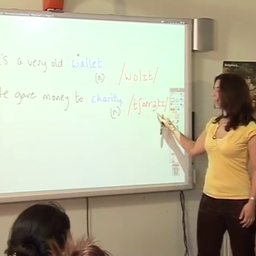 's a very old wallet (n) /wɒlɪt/
e gave money to charity (n) /tʃærətɪ/